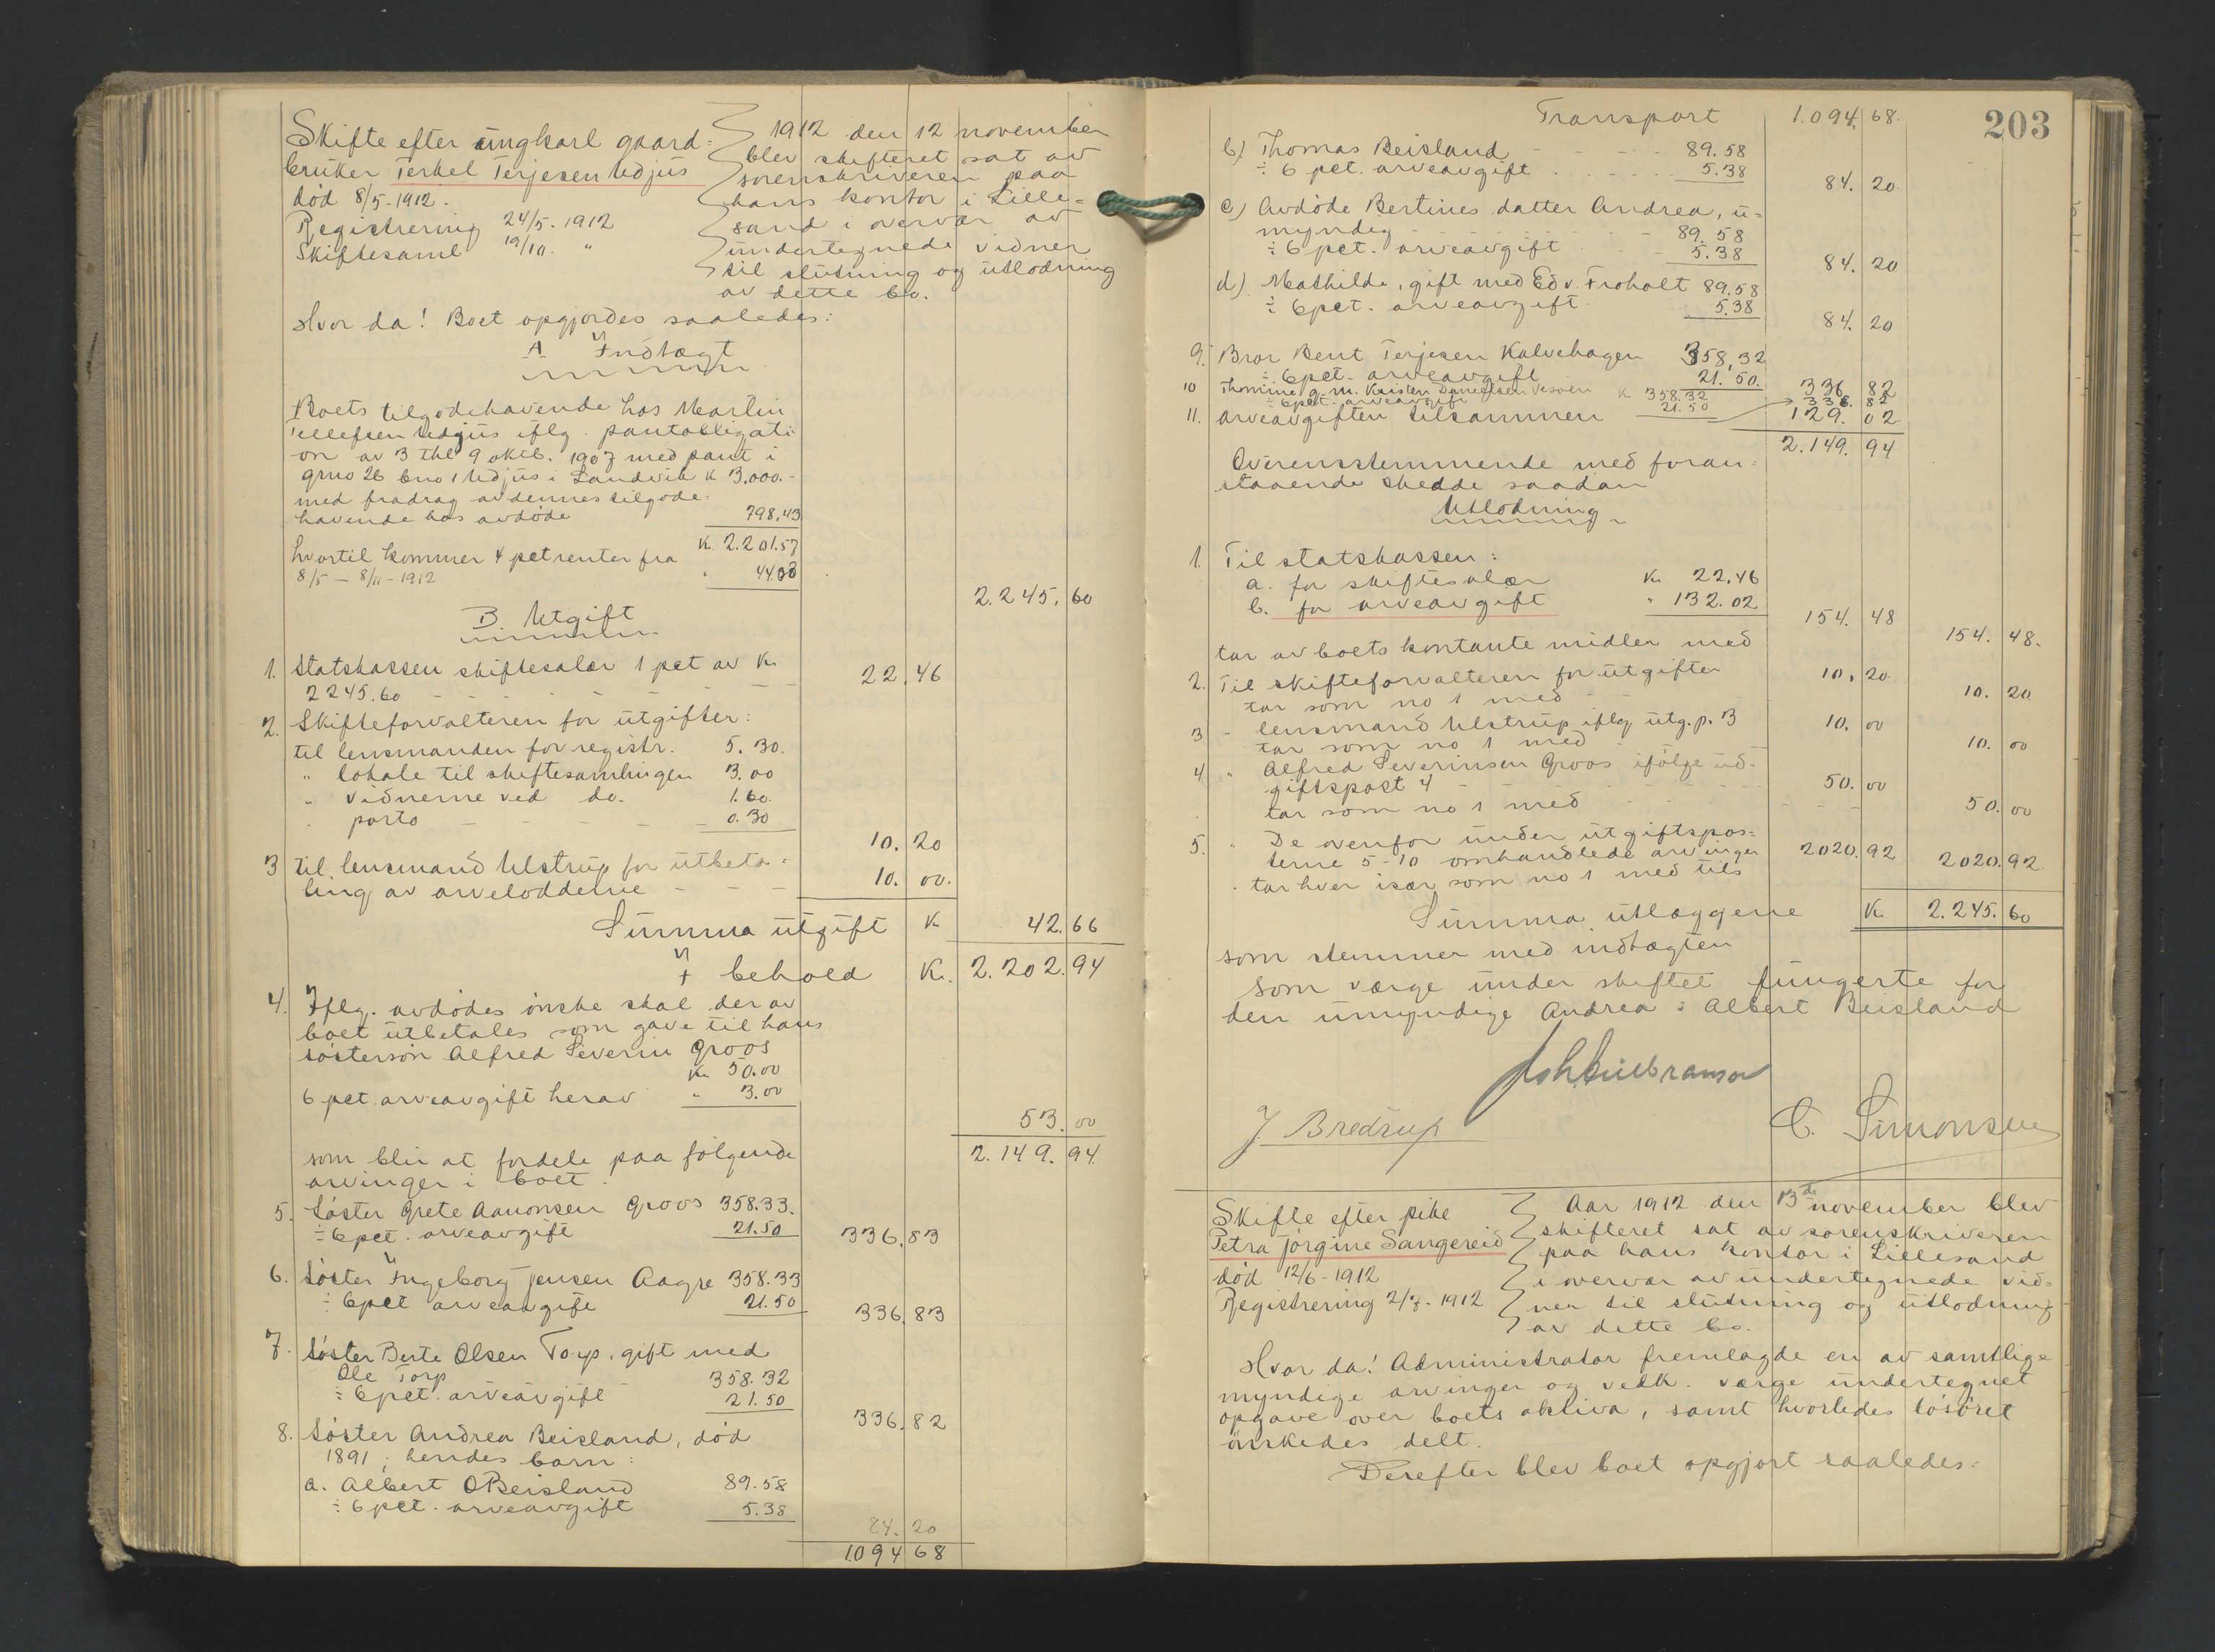 Skifte efter ungkarl gaard=
bruker Terkel Terjesen Udjus
död 8/5-1912.
Registrering 24/5-1912
Skiftesaml 19/10. "
1912 den 12 november
blev skifteret sat av
sorenskriveren paa
hans kontor i Lille=
sand i overvær av
undertegnede vidner
til slutning og utlodning
av dette bo.
Hvor da! Boet opgjordes saaledes:
A Indtægt
Boets tilgodehavende hos Martin
Tellefsen Udjus iflg. pantobligati
on av 3 thl 9 oktb. 1907 med pant i
grno 26 bno 1 Udjus i Landvik K 3.000.-
med fradrag av dennes tilgode=
havende hos avdöde 798,43
K. 2.201.57
hvortil kommer 4 pct renter fra
8/5 - 8/11 - 1912 " 44.03
2.245.60
B. Utgift
1. Statskassen skiftesalær 1 pct av Kr
2245.60 - - - - 22.46
2. Skifteforvalteren for utgifter:
til lensmanden for registr. 5.30.
" lokale til skiftesamlingen 3.00
" vidnerne ved do. 1.60.
" porto - - - - 0.30
10.20
3 til lensmand Ulstrup for utbeta=
ling av arvelodderne - - - 10.00.
Summa utgift K 42.66
I behold K. 2.202.94
4. Iflg. avdödes önske skal der av
boet utbetales som gave til hans
söstersön Alfred Severin Groos
Kr 50.00
6 pct. arveavgift herav " 3.00
53.00
2.149.94
som blir at fordele paa følgende
arvinger i boet.
5. Söster Grete Aanonsen Groos 358.33.
÷ 6 pct. arveavgift 21.50
336.83
6. Söster Ingeborg Jensen Aagre 358.33
÷ 6 pct arveavgift 21.50
336.83
7. Söster Berte Olsen Torp, gift med
Ole Torp 358.32
÷ 6 pct. arveavgift 21.50
336.82
8. Söster Andrea Beisland, död
1891; hendes barn:
a. Albert O Beisland 89.58
÷ 6 pct. arveavgift 5.38
84.20
1094 68
203
Transport 1.094.68.
b) Thomas Beisland - - - - 89.58
÷ 6 pct. arveavgift 5.38
84.20
c) Avdöde Bertines datter Andrea, u=
myndig - - - 89.58
÷ 6 pct. arveavgift 5.38
84.20
d). Mathilde, gift med Edv. Froholt 89.58
÷ 6 pct. arveavgift 5.38
84.20
9. Bror Bent Terjesen Kalvehagen 358,32
÷ 6 pct. arveavgift 21.50.
336.82
10 Thomine g. m. Kristen Danielsen K 358.32
÷ 6 pct. arveavgift 21.50
336.82
11. arveavgiften tilsammen 129.02.
2.149.94
Overensstemmende med foran=
staaende skedde saadan
Utlodning
1. Til statskassen:
a. for skiftesalær Kr 22,46
b. for arveavgift " 132.02
154.48
tar av boets kontante midler med 154.48.
2. Til skifteforvalteren for utgifter 10.20.
tar som no 1 med - - 10.20
3 - lensmand Ulstrup iflg utg.p. 3 10.00
tar som no 1 med 10.00
4 " Alfred Severinsen Groos ifölge ud=
giftspost 4 - - - 50.00
tar som no 1 med - - - 50.00
5. " De ovenfor under utgiftspos=
terne 5-10 omhandlede arvinger 2020.92
tar hver især som no 1 med tils 2020.92
Summa utlæggene K. 2.245.60
som stemmer med indtægten
Som værge under skiftet fungerte for
den umyndige Andrea: Albert Beisland
J. Bredrup
C. Simonsen
Skifte efter pike
Petra Jörgine Sangereid
död 12/6-1912
Registrering 2/7-1912
Aar 1912 den 13de november blev
skifteret sat av sorenskriveren
paa hans kontor i Lillesand
i overvær av undertegnede vid=
ner til slutning og utlodning
av dette bo.
Hvor da! Administrator fremlagde en av samtlige
myndige arvinger og vedk. værge undertegnet
opgave over boets aktiva, samt hvorledes lösöret
önskedes delt.
Derefter blev boet opgjort saaledes: